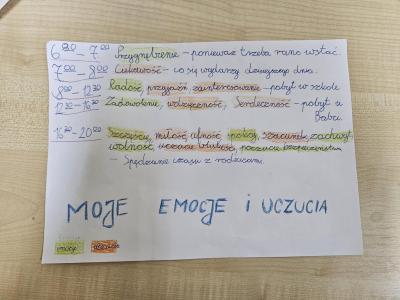 6⁰⁰ – 7⁰⁰ Przygnębienie – ponieważ trzeba rano wstać.
7⁰⁰ – 8⁰⁰ Ciekawość – co się wydarzy dzisiejszego dnia.
8⁰⁰ – 12³⁰ Radość, przyjaźń, zainteresowanie – pobyt w szkole
12³⁰ – 16³⁰ Zadowolenie, wdzięczność, Serdeczność – pobyt u
Babci.
16³⁰ – 20⁰⁰ Szczęście, miłość, ufność, spokój, szacunek, zachwyt,
wolność, uczucie bliskości, poczucie bezpieczeństwa
– Spędzanie czasu z rodzicami.
MOJE EMOCJE i UCZUCIA
emocje uczucia